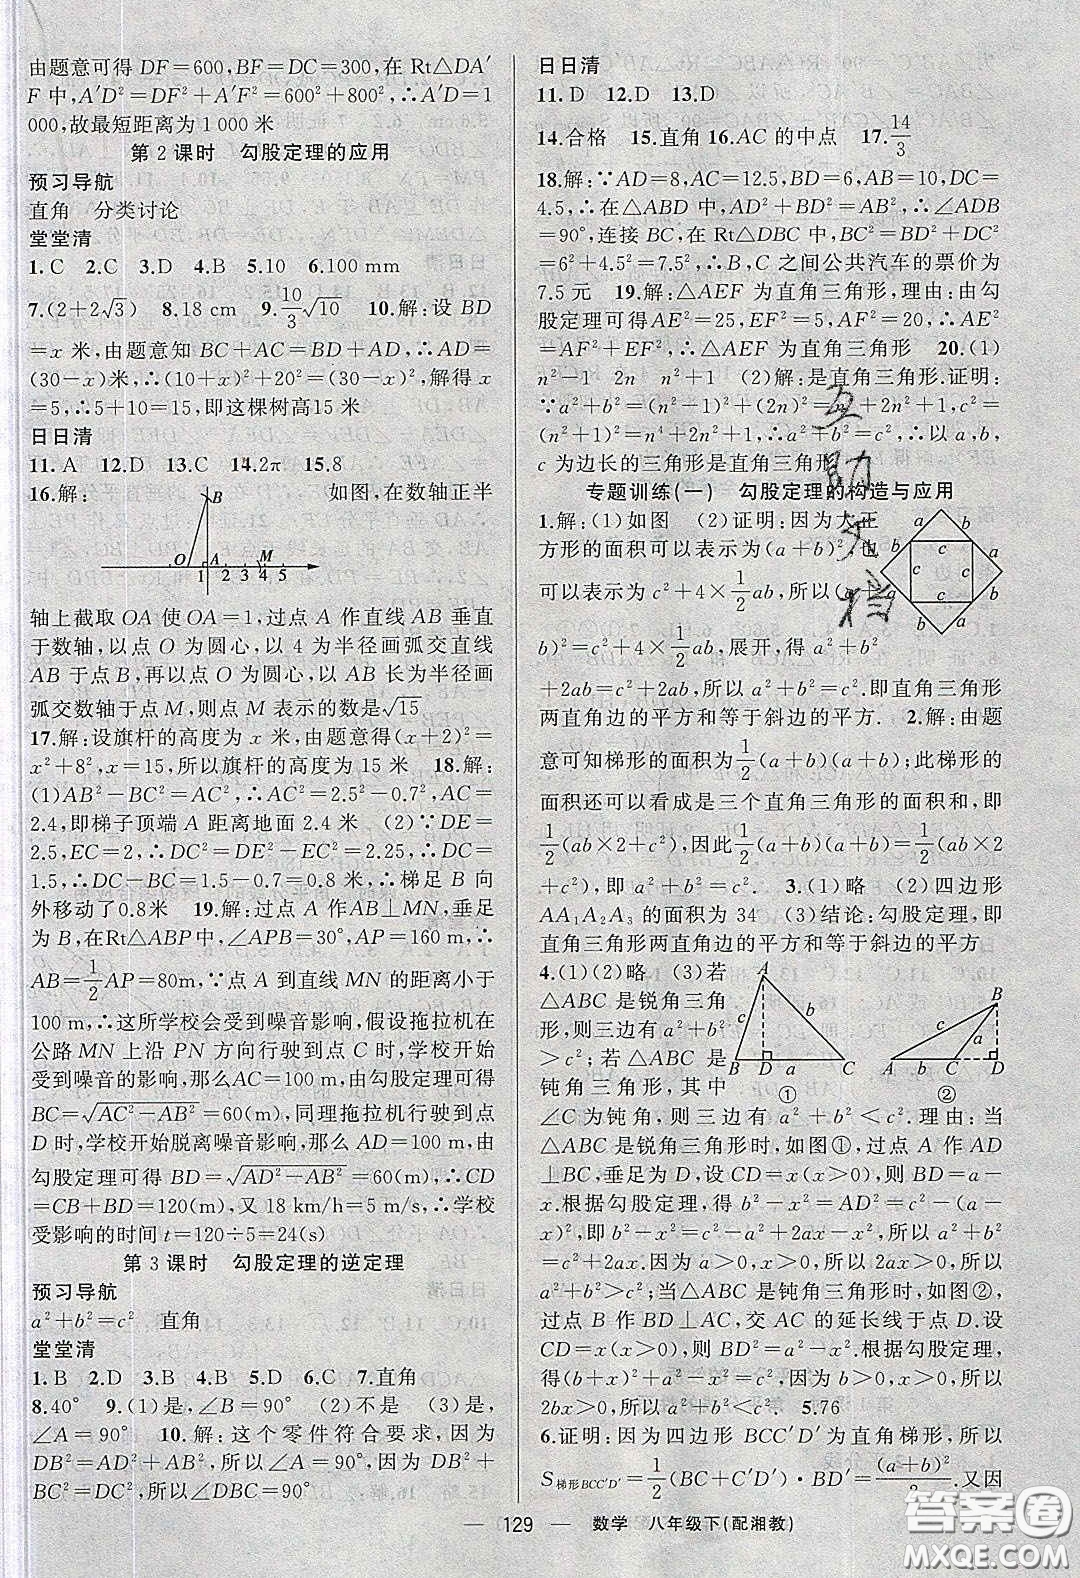 由题意可得 DF=600,BF=DC=300,在 Rt△DA′
F 中,A′D²=DF²+A′F²=600²+800²,∴A′D=1
000,故最短距离为 1 000 米
第 2 课时　勾股定理的应用
预习导航
直角　分类讨论
堂堂清
1.C　2.C　3.D　4.B　5.10　6.100 mm
7.(2+2√3)　8.18 cm　9.10/3√10　10.解:设 BD
=x 米,由题意知 BC+AC=BD+AD,∴AD=
(30-x)米,∴(10+x)²+20²=(30-x)²,解得 x
=5,∴5+10=15,即这棵树高15 米
日日清
11.A　12.D　13.C　14.2π　15.8
16.解:　如图,在数轴正半
B
O 1 A 2 3 4 5 M
轴上截取 OA 使 OA=1,过点 A 作直线 AB 垂直
于数轴,以点 O 为圆心,以 4 为半径画弧交直线
AB 于点 B,再以点 O 为圆心,以 AB 长为半径画
弧交数轴于点 M,则点 M 表示的数是√15
17.解:设旗杆的高度为 x 米,由题意得(x+2)²=
x²+8²,x=15,所以旗杆的高度为 15 米　18.解:
(1)AB²-BC²=AC²,∴AC²=2.5²-0.7²,AC=
2.4,即梯子顶端 A 距离地面 2.4 米　(2)∵DE=
2.5,EC=2,∴DC²=DE²-EC²=2.25,∴DC=
1.5,∴DC-BC=1.5-0.7=0.8 米,∴梯足 B 向
外移动了0.8米　19.解:过点 A 作AB⊥MN,垂足
为 B,在Rt△ABP中,∠APB=30°,AP=160 m,∴
AB=1/2AP=80m,∵点 A 到直线 MN 的距离小于
100 m,∴这所学校会受到噪音影响,假设拖拉机在
公路 MN 上沿 PN 方向行驶到点 C 时,学校开始
受到噪音的影响,那么AC=100 m,由勾股定理可得
BC=√(AC²-AB²)=60(m),同理拖拉机行驶到点
D 时,学校开始脱离噪音影响,那么 AD=100 m,由
勾股定理可得 BD=√(AD²-AB²)=60(m),∴CD
=CB+BD=120(m),又 18 km/h=5 m/s,∴学校
受影响的时间 t=120÷5=24(s)
第 3 课时　勾股定理的逆定理
预习导航
a²+b²=c²　直角
堂堂清
1.B　2.D　3.B　4.B　5.D　6.C　7.直角
8.40°　9.(1)是,∠B=90°　(2)不是　(3)是,
∠A=90°　10.解:这个零件符合要求,因为
DB²=AD²+AB²,所以∠A=90°,因为 DB²+
BC²=DC²,所以∠DBC=90°
日日清
11.D　12.D　13.D
14.合格　15.直角 16.AC 的中点　17.14/3
18.解:∵AD=8,AC=12.5,BD=6,AB=10,DC=
4.5,∴在△ABD 中,AD²+BD²=AB²,∴∠ADB
=90°,连接 BC,在Rt△DBC 中,BC²=BD²+DC²
=6²+4.5²=7.5²,∴B,C 之间公共汽车的票价为
7.5 元　19.解:△AEF 为直角三角形,理由:由勾
股定理可得AE²=25,EF²=5,AF²=20,∴AE²
=AF²+EF²,∴△AEF 为直角三角形　20.(1)
n²-1　2n　n²+1　(2)解:是直角三角形.证明:
∵a²+b²=(n²-1)²+(2n)²=n⁴+2n²+1,c²=
(n²+1)²=n⁴+2n²+1,∴a²+b²=c²,∴以 a,b,
c 为边长的三角形是直角三角形
专题训练(一)　勾股定理的构造与应用
1.解:(1)如图　(2)证明:因为大正
方形的面积可以表示为(a+b)²,也
可以表示为 c²+4×1/2ab,所以(a+
b)²=c²+4×1/2ab,展开,得 a²+b²
+2ab=c²+2ab,所以 a²+b²=c².即直角三角形
两直角边的平方和等于斜边的平方.　2.解:由题
意可知梯形的面积为1/2(a+b)(a+b),此梯形的
面积还可以看成是三个直角三角形的面积和,即
1/2(ab×2+c²),因此1/2(a+b)(a+b)=1/2(ab×2
+c²),即 a²+b²=c²　3.(1)略　(2)四边形
AA₁A₂A₃ 的面积为 34　(3)结论:勾股定理,即
直角三角形两直角边的平方和等于斜边的平方
4.(1)(2)略　(3)若
△ABC 是锐角三角
形,则三边有 a²+b²
>c²;若△ABC 是
钝角三角形,其中
A
b
c
B D a C
①
B
c
a
A b C D
②
∠C 为钝角,则三边有 a²+b²<c².理由:当
△ABC 是锐角三角形时,如图①,过点 A 作 AD
⊥BC,垂足为 D,设 CD=x(x>0),则 BD=a-
x.根据勾股定理,得 b²-x²=AD²=c²-(a-
x)²,即 b²-x²=c²-a²+2ax-x²,所以 a²+b²=
c²+2ax.因为 a>0,x>0,所以 2ax>0,所以 a²+
b²>c²;当△ABC 是钝角三角形时,如图②,
过点 B 作 BD⊥AC,交 AC 的延长线于点 D,
设 CD=x(x>0),则 BD²=a²-x².根据勾股定理,得
(b+x)²+a²-x²=c²,即 a²+b²+2bx=c².因为 b>0,x>0,所以
2bx>0,所以 a²+b²<c²　5.76
6.证明:因为四边形 BCC′D′为直角梯形,所以
S梯形BCC′D′=1/2(BC+C′D′)·BD′=(a+b)²/2.又因
互助文档
129　数学　八年级下(配湘教)
答案圈
MXQE.COM